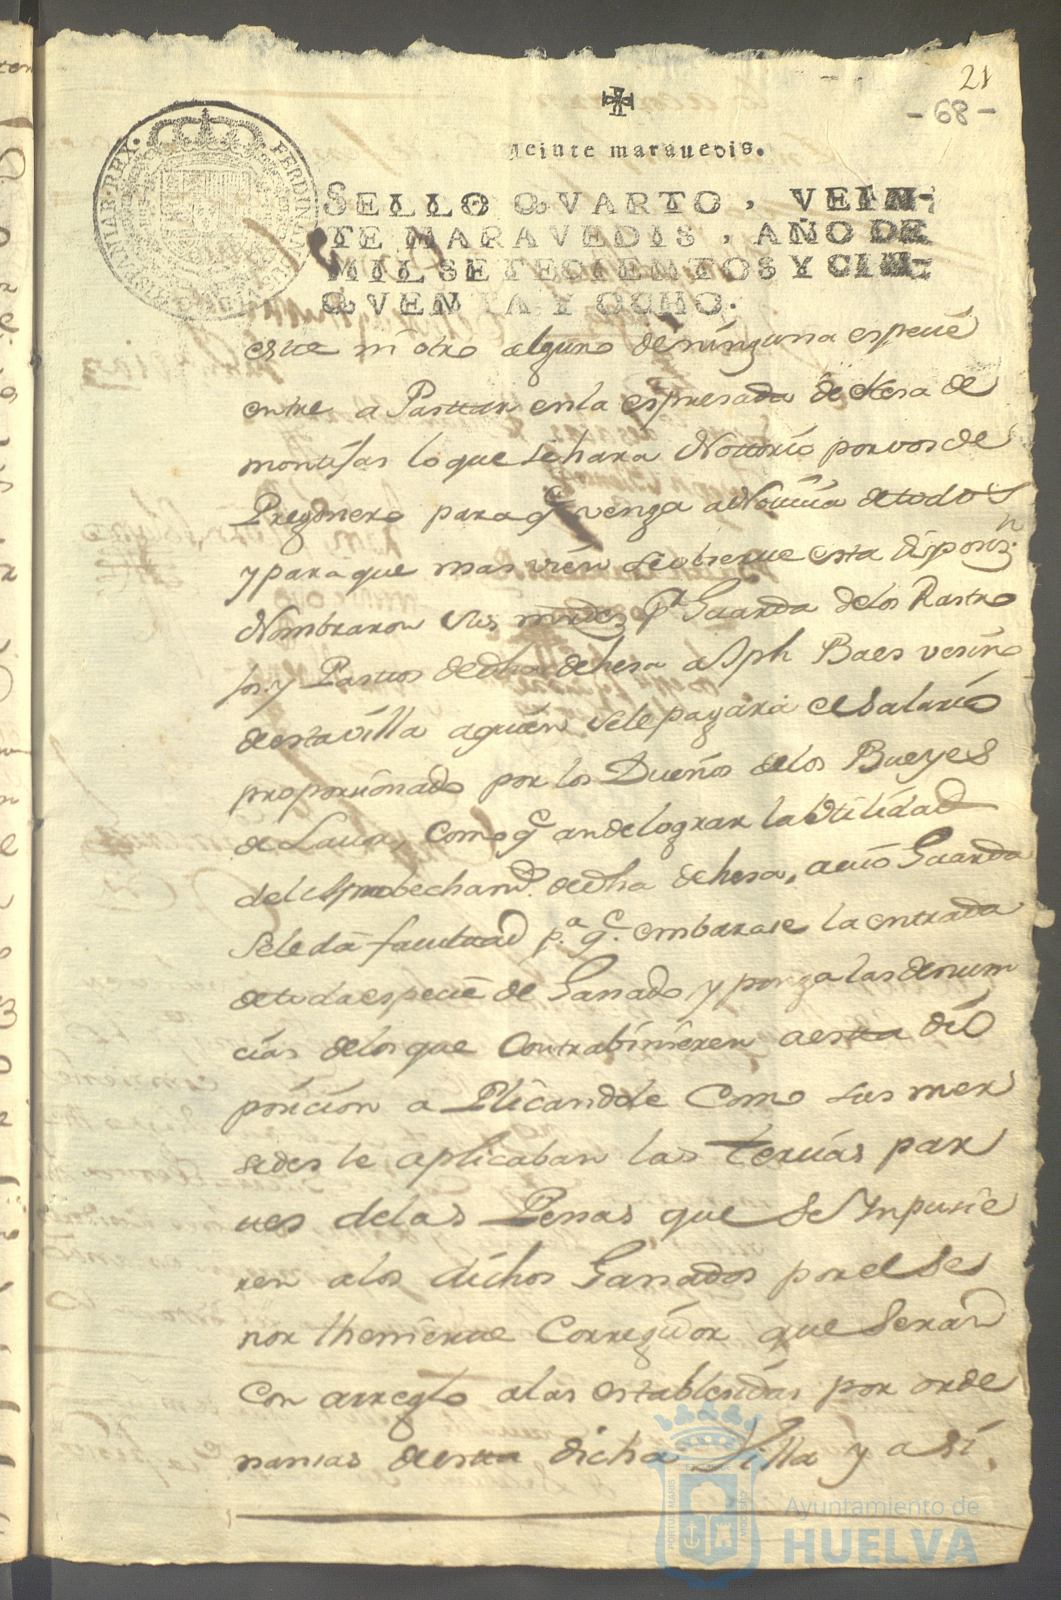 21
-68-
Veinte maravedis.
SELLO QVARTO, VEIN-
TE MARAVEDIS, AÑO DE
MIL SETECIENTOS Y CIN-
QVENTA Y OCHO.
HISPANIAR·REX· FERDINAN
este ni otro alguno de ninguna especie
entre a Pastar en la espresada dehesa de
montijas lo que se hara Nottorio por vos de
Pregonero para q^e venga a Noticia de todos
y para que mas vien se obserue esta disposiz.^n
Nombraron sus mrdez p^r Guarda de los Rastro
jos y Pastos de dha dehesa a Jph Baes vesino
de esta villa a quien se le pagara el Salario
proporcionado por los Dueños de los Bueyes
de Laua, como q^e an de lograr la Utilidad
del Aprobecham.^o de dha dehesa, a cuio Guarda
se le da facultad p.^a q.^e embarase la entrada
de toda especie de Ganado y ponga las denun
cias de los que Contrabinieren a esta dis
posicion a Plicandole Como sus mer
sedes le aplicaban las tercias par
tes de las Penas que se Ynpusie
ren a los dichos Ganados por el Se
nor theniente Corregidor que Seran
Con arreglo a las establesidas por orde
nansas de esta dicha Villa y asi
PORTUS MARIS
Ayuntamiento de
HUELVA